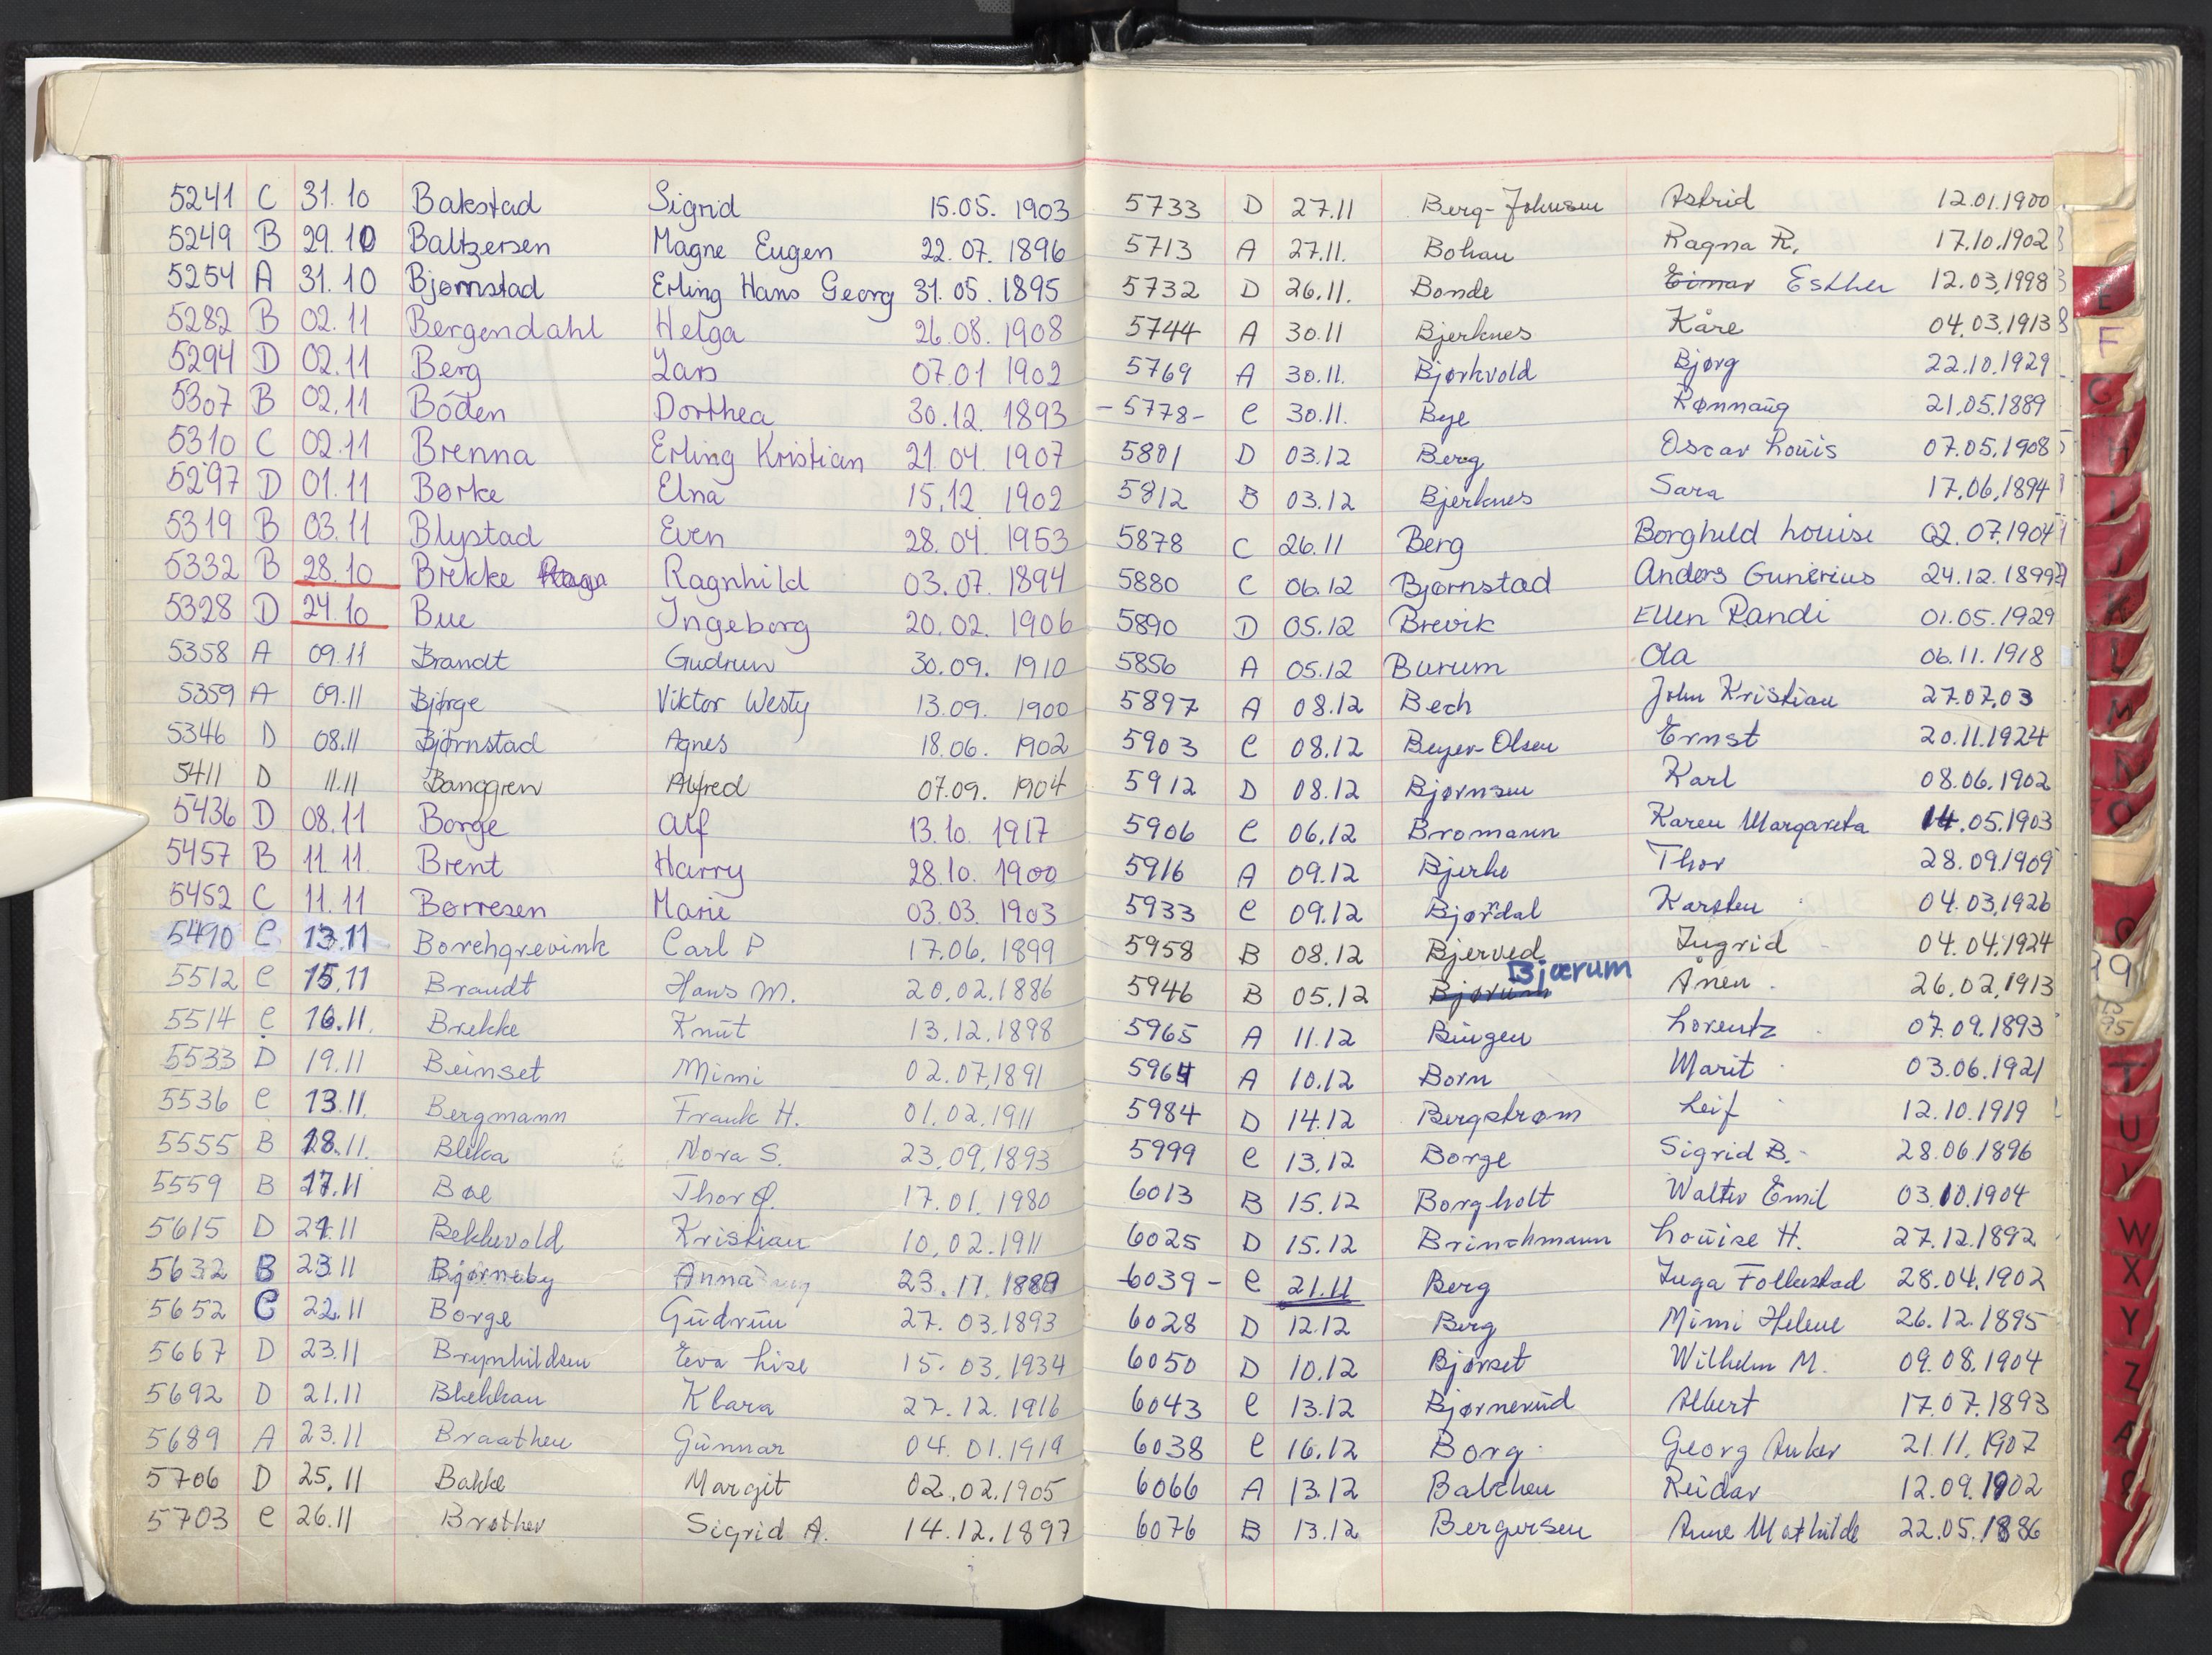 5241 C 31.10 Bakstad Sigrid 15.05. 1903
5249 B 29.10 Baltzersen Magne Eugen 22.07. 1896
5254 A 31.10 Bjørnstad Erling Hans Georg 31.05. 1895
5282 B 02.11 Bergendahl Helga 26.08. 1908
5294 D 02.11 Berg Lars 07.01 1902
5307 B 02.11 Bóden Dorthea 30.12. 1893
5310 C 02.11 Brenna Erling Kristian 21.04. 1907
5297 D 01.11 Børke Elna 15.12 1902
5319 B 03.11 Blystad Even 28.04. 1953
5332 B 28.10 Brekke Ragn Ragnhild 03.07. 1894
5328 D 24.10 Bue Ingeborg 20.02. 1906
5358 A 09.11 Brandt Gudrun 30.09. 1910
5359 A 09.11 Bjørge Viktor Westy 13.09. 1900
5346 D 08.11 Bjørnstad Agnes 18.06. 1902
5411 D 11.11 Banggren Alfred 07.09. 1904
5436 D 08.11 Borge Alf 13.10. 1917
5457 B 11.11 Brent Harry 28.10. 1900
5452 C 11.11 Børresen Marie 03.03. 1903
5490 C 13.11 Borchgrevink Carl P 17.06. 1899
5512 C 15.11 Brandt Hans M. 20.02.1886
5514 C 16.11. Brekke Knut 13.12.1898
5533 D 19.11 Beimset Mimi 02.07.1891
5536 C 13.11. Bergmann Frank H. 01.02.1911
5555 B 18.11. Bleka Nora S. 23.09.1893
5559 B 17.11 Bøe Thor Ø. 17.01.1980
5615 D 21.11 Bekkevold Kristian 10.02.1911
5632 B 23.11 Bjørneby Anna 23.11.1889
5652 C 22.11 Borge Gudrun 27.03.1893
5667 D 23.11 Brynhildsen Eva Lise 15.03.1934
5692 D 21.11 Blekkan Klara 27.12.1916
5689 A 23.11 Braathen Gunnar 04.01.1919
5706 D 25.11 Bakke Margit 02.02.1905
5703 C 26.11 Brøther Sigrid A. 14.12.1897
5733 D 27.11 Berg-Johnsen Astrid 12.01.1900
5713 A 27.11. Bohan Ragna R. 17.10.1902
5732 D 26.11. Bonde Einar Esther 12.03.1998
5744 A 30.11 Bjerknes Kåre 04.03.1913
5769 A 30.11. Bjørkvold Bjørg 22.10.1929
-5778- C 30.11. Bye Rønnaug 21.05.1889
5801 D 03.12 Berg Oscar Louis 07.05.1908
5812 B 03.12 Bjerknes Sara 17.06.1894
5878 C 26.11 Berg Borghild Louise 02.07.1904
5880 C 06.12 Bjørnstad Anders Gunerius 24.12.1899
5890 D 05.12 Brevik Ellen Randi 01.05.1929
5856 A 05.12 Burum Ola 06.11.1918
5897 A 08.12 Bech John Kristian 27.07.03
5903 C 08.12 Beyer-Olsen Ernst 20.11.1924
5912 D 08.12 Bjørnsen Karl 08.06.1902
5906 C 06.12 Bromann Karen Margareta 14.05.1903
5916 A 09.12 Bjerke Thor 28.09.1909
5933 C 09.12 Bjørdal Karsten 04.03.1926
5958 B 08.12 Bjerved Ingrid 04.04.1924
5946 B 05.12 Bjørum Bjærum Ånen 26.02.1913
5965 A 11.12 Bingen Lorentz 07.09.1893
5964 A 10.12 Born Marit 03.06.1921
5984 D 14.12 Bergstrøm Leif 12.10.1919
5999 C 13.12 Borge Sigrid B. 28.06.1896
6013 B 15.12 Borgholt Walter Emil 03.10.1904
6025 D 15.12 Brinchmann Louise H. 27.12.1892
6039- C 21.11 Berg Inga Follestad 28.04.1902
6028 D 12.12 Berg Mimi Helene 26.12.1895
6050 D 10.12 Bjørset Wilhelm M. 09.08.1904
6043 C 13.12 Bjørnerud Albert 17.07.1893
6038 C 16.12 Borg Georg Anker 21.11.1907
6066 A 13.12 Balchen Reidar 12.09.1902
6076 B 13.12 Bergersen Anne Mathilde 22.05.1886
E
F
G
H
I
J
K
L
M
N
O
T
U
V
W
X
Y
Z